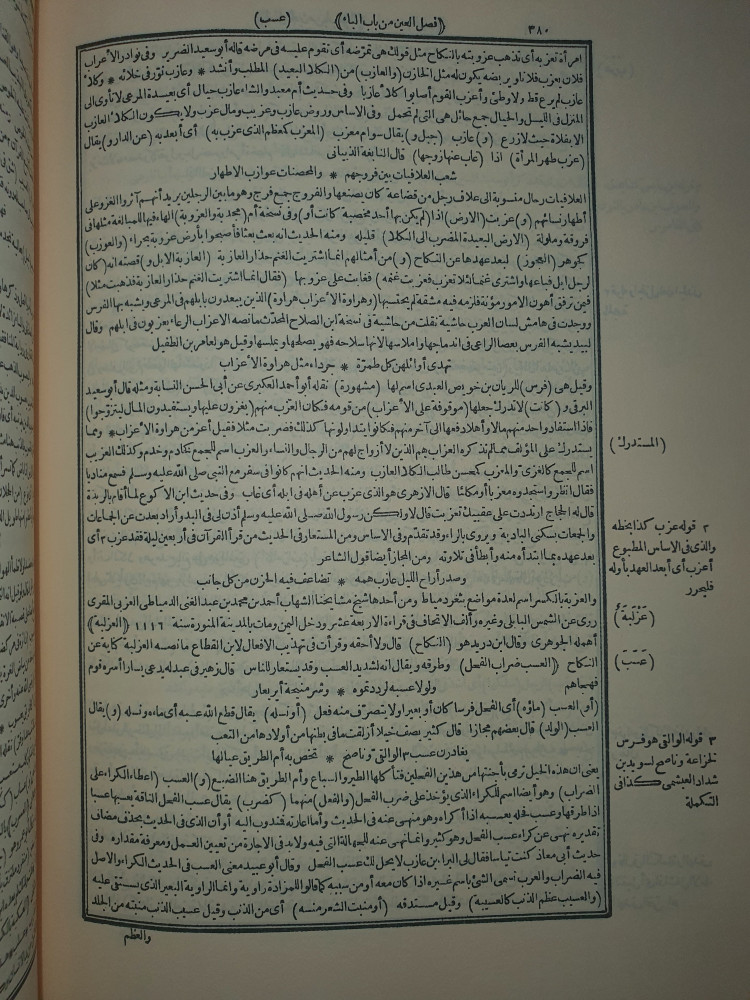 ٣٨٠
(فصل العين من باب الباء)
(عسب)
امرأة تعزبه أى تذهب عزوبته بالنكاح مثل قولك هى تمرّضه أى تقوم عليه فى مرضه قاله أبو سعيد الضرير وفى نوادر الأعراب
فلان يعزب فلانا ويربضه يكون له مثل الخازن (والعازب) من (الكلا البعيد) المطلب وأنشد * وعازب نوّر فى خلائه * وكلأ
عازب لم يرع قط ولا وطئ وأعزب القوم أصابوا كلأ عازبا وفى حديث أم معبد والشاء عازب حيال أى بعيدة المرعى لا تأوى الى
المنزل فى الليل والحيال جمع حائل هى التى لم تحمل وفى الاساس وروض عازب وعزيب ومال عزب ولا يكون الكلأ العازب
الا بفلاة حيث لا زرع (و) عازب (جبل و) يقال سوام معزب (المعزب كمعظم الذى عزب به) أى أبعد به (عن الدار و) يقال
(عزب طهر المرأة) اذا (غاب عنها زوجها) قال النابغة الذبيانى
شعب العلافيات بين فروجهم * والمحصنات عوازب الاطهار
العلافيات رحال منسوبة الى علاف رجل من قضاعة كان يصنعها والفروج جمع فرج وهو ما بين الرجلين يريد أنهم آثروا الغزو على
أطهار نسائهم (و) عزبت (الارض) اذا (لم يكن بها أحد مخصبة كانت أو) وفى نسخة أم (مجدبة والعزوبة) الهاء فيها للمبالغة مثلها فى
فروقة وملولة (الارض البعيدة المضرب الى الكلا) قليله ومنه الحديث انه بعث بعثا فأصبحوا بأرض عزوبة بجراء (والعوزب)
كجوهر (العجوز) لبعد عهدها عن النكاح (و) من أمثالهم انما اشتريت الغنم حذار العازبة (العازبة الابل و) قصته انه (كان
لرجل ابل فباعها واشترى غنما لئلا تعزب فعزبت غنمه) فعاتب على عزوبها (فقال انما اشتريت الغنم حذار العازبة فذهبت مثلا)
فيمن ترفق أهون الامور مؤنة فلزمه فيه مشقة لم يحتسبها (وهراوة الأعزاب هراوة) الذين يبعدون بابلهم فى المرعى ويشبه بها الفرس
ووجدت فى هامش لسان العرب حاشية نقلت من حاشية فى نسخة ابن الصلاح المحدث مانصه الاعزاب الرعاء يعزبون فى ابلهم وقال
لبيد يشبه الفرس بعصا الراعى فى اندماجها واملاسها لانها سلاحه فهو يصلحها ويملسها وقيل هو لعامر بن الطفيل
تهدى أوائلهن كل طمرّة * جرداء مثل هراوة الأعزاب
وقيل هى (فرس) للريان بن خويص العبدى اسم لها (مشهورة) نقله أبو أحمد العكبرى عن أبى الحسن النسابة ومثله قال أبو سعيد
البرقى و (كانت) لا تدرك جعلها (موقوفة على الأعزاب) من قومه فكان العزب منهم (يغزون عليها ويستفيدون المال ليتزوّجوا)
فاذا استفاد واحد منهم مالا وأهلا دفعها الى آخر منهم فكانوا يتداولونها كذلك فضربت مثلا فقيل أعز من هراوة الأعزاب * ومما
يستدرك على المؤلف مما لم تذكره العزاب هم الذين لا أزواج لهم من الرجال والنساء والعزب اسم للجمع كخادم وخدم وكذلك العزيب
اسم للجمع كالغزىّ والمعزب كمحسن طالب الكلا العازب ومنه الحديث انهم كانوا فى سفر مع النبى صلى الله عليه وسلم فسمع مناديا
فقال انظروا ستجدوه معزبا أو مكلئا قال الازهرى هو الذى عزب عن أهله فى ابله أى غاب وفى حديث ابن الاكوع لما أقام بالربذة
قال له الحجاج ارتددت على عقبيك تعزبت قال لا ولكن رسول الله صلى الله عليه وسلم أذن لى فى البدو أراد بعدت عن الجماعات
والجمعات بسكنى البادية ويروى بالراء وقد تقدّم وفى الاساس ومن المستعار فى الحديث من قرأ القرآن فى أربعين ليلة فقد عزب ٢ أى
بعد عهده بما ابتدأ منه وأبطأ فى تلاوته ومن المجاز أيضا قول الشاعر
وصدر أراح الليل عازب همه * تضاعف فيه الحزن من كل جانب
والعزبة بالكسر اسم لعدة مواضع بثغر دمياط ومن أحدها شيخ مشايخنا الشهاب أحمد بن محمد بن عبد الغنى الدمياطى العزبى المقرى
روى عن الشمس البابلى وغيره وألف الاتحاف فى قراءة الاربعة عشر ودخل اليمن ومات بالمدينة المنورة سنة ١١١٦ (العزلبة)
أهمله الجوهرى وقال ابن دريد هو (النكاح) قال ولا أحقه وقرأت فى تهذيب الافعال لابن القطاع مانصه العزلبة كناية عن
النكاح (العسب ضراب الفحل) وطرقه ويقال انه لشديد العسب وقد يستعار للناس قال زهير فى عبد له يدعى يسارا أسره قوم
فهجاهم
ولولا عسبه لرددتموه * وشر منيحة أير معار
(أو) العسب (ماؤه) أى الفحل فرسا كان أو بعيرا ولا يتصرّف منه فعل (أو نسله) يقال قطع الله عسبه أى ماءه ونسله (و) يقال
العسب (الولد) قال بعضهم مجازا قال كثير يصف خيلا أزلقت ما فى بطنها من أولادها من التعب
يغادرن عسب ٣ الوالقىّ وناصح * تخص به أم الطريق عيالها
يعنى ان هذه الخيل ترمى بأجنتها من هذين الفحلين فتأكلها الطير والسباع وأم الطريق هنا الضبع (و) العسب (اعطاء الكراء على
الضراب) وهو أيضا اسم للكراء الذى يؤخذ على ضرب الفحل (والفعل) منهما (كضرب) يقال عسب الفحل الناقة يعسبها عسبا
اذا طرقها وعسب فحله يعسبه اذا أكراه وهو منهى عنه فى الحديث وأما اعارته فمندوب اليه أو أن الذى فى الحديث بحذف مضاف
تقديره نهى عن كراء عسب الفحل وهو كثير وانما نهى عنه للجهالة التى فيه ولا بد فى الاجارة من تعيين العمل ومعرفة مقداره وفى
حديث أبى معاذ كنت تياسا فقال لى البراء بن عازب لا يحل لك عسب الفحل وقال أبو عبيد معنى العسب فى الحديث الكراء والاصل
فيه الضراب والعرب تسمى الشئ باسم غيره اذا كان معه أو من سببه كما قالوا للمزادة راوية وانما الراوية البعير الذى يستقى عليه
(والعسيب عظم الذنب كالعسيبة) وقيل مستدقه (أو منبت الشعر منه) أى من الذنب وقيل عسيب الذنب منبته من الجلد
والعظم
(المستدرك)
٢ قوله عزب كذا بخطه
والذى فى الاساس المطبوع
أعزب أى أبعد العهد بأوله
فليحرر
(عَزْلَبَةٌ)
(عَسَبَ)
٣ قوله الوالقى هو فرس
لخزاعة وناصح لسويد بن
شداد العبشمى كذا فى
التكملة